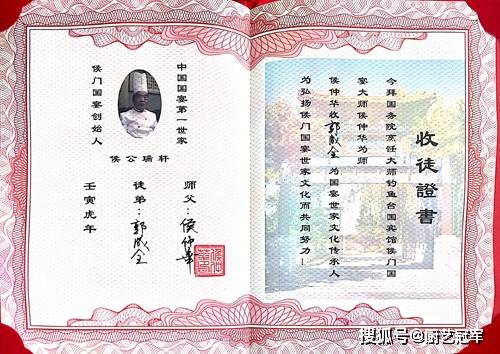 收徒證書
今拜国务院烹饪大师钓鱼台国宾馆侯门国
宴大师侯仲华为师
侯仲华收郭成全为国宴世家文化传承人
为弘扬侯门国宴世家文化而共同努力！
中国国宴第一世家
侯门国宴创始人
侯公瑞轩
师父：侯仲华
徒弟：郭成全
壬寅虎年
搜狐号@厨艺冠军